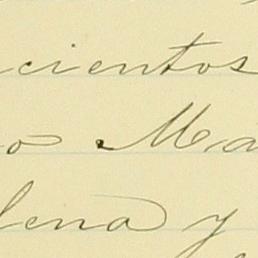 cientos
o Ma
lena y